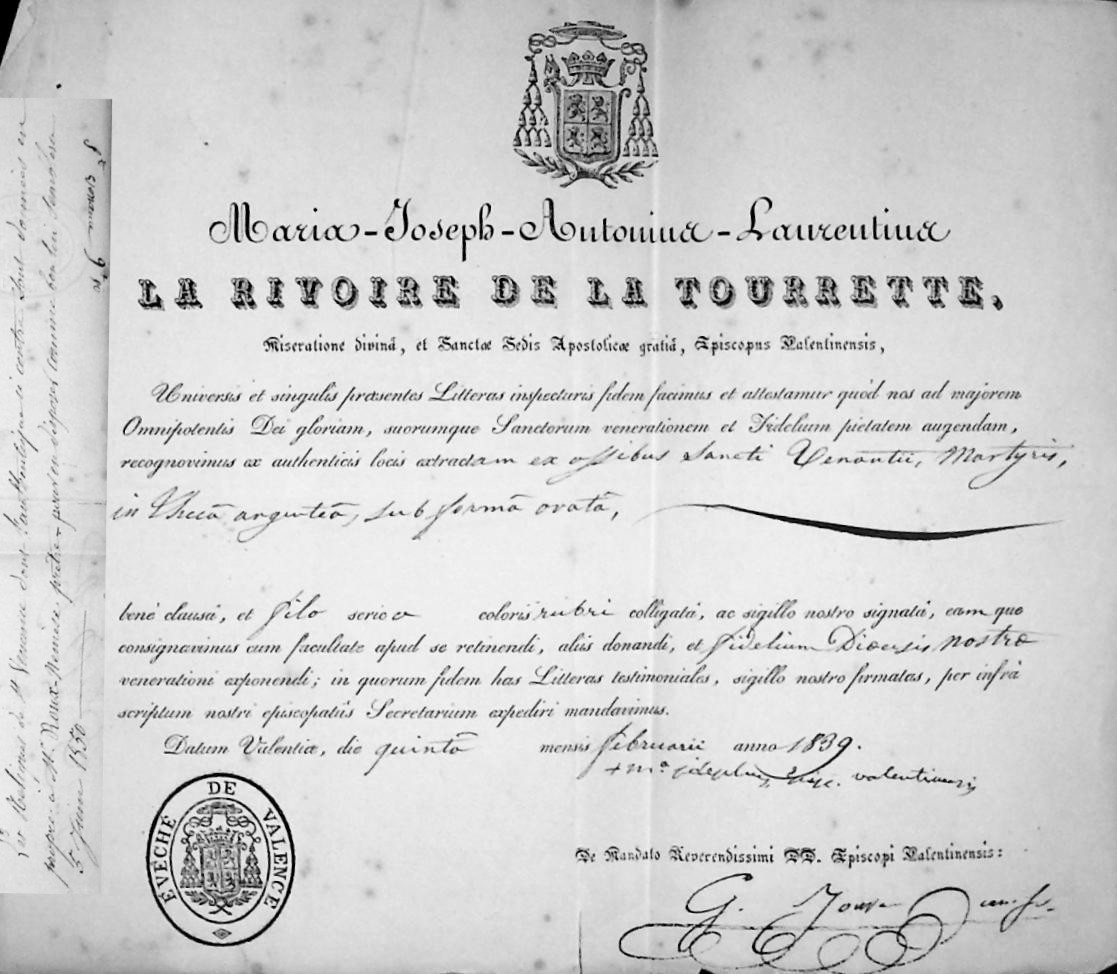 Maria-Joseph-Antonius-Laurentius
LA RIVOIRE DE LA TOURRETTE,
Miseratione divinâ, et Sanctæ Sedis Apostolicæ gratiâ, Episcopus Valentinensis,
Universis et singulis præsentes Litteras inspecturis fidem facimus et attestamur quòd nos ad majorem
Omnipotentis Dei gloriam, suorumque Sanctorum venerationem et Fidelium pietatem augendam,
recognovimus ex authenticis locis extractam ex ossibus Sancti Venantii, Martyris,
in thecâ argenteâ, sub formâ ovatâ,
benè clausâ, et filo serico coloris rubri colligatâ, ac sigillo nostro signatâ, eam que
consignavimus cum facultate apud se retinendi, aliis donandi, et fidelium Diœcesis nostræ
venerationi exponendi; in quorum fidem has Litteras testimoniales, sigillo nostro firmatas, per infrà
scriptum nostri episcopatûs Secretarium expediri mandavimus.
Datum Valentiæ, die quintâ mensis februarii anno 1839.
+ m. josephus, Epis. valentinensis
De Mandato Reverendissimi DD. Episcopi Valentinensis:
G. Jouve
EVÉCHÉ DE VALENCE
Les Reliques de St Venance dont l'authentique ci contre sont donnés en
propre à Mr. Roux prêtre pour en disposer comme bon lui semblera
5 Juin 1850